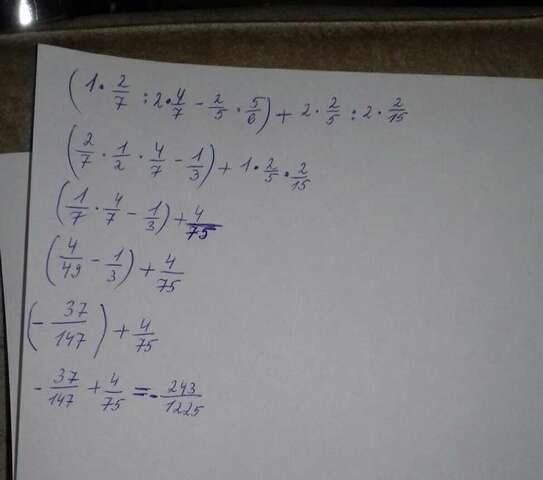 (1 · 2/7 : 2 · 4/7 - 2/5 · 5/6) + 2 · 2/5 : 2 · 2/15
(2/7 · 1/2 · 4/7 - 1/3) + 1 · 2/5 · 2/15
(1/7 · 4/7 - 1/3) + 4/75
(4/49 - 1/3) + 4/75
(- 37/147) + 4/75
- 37/147 + 4/75 = - 243/1225